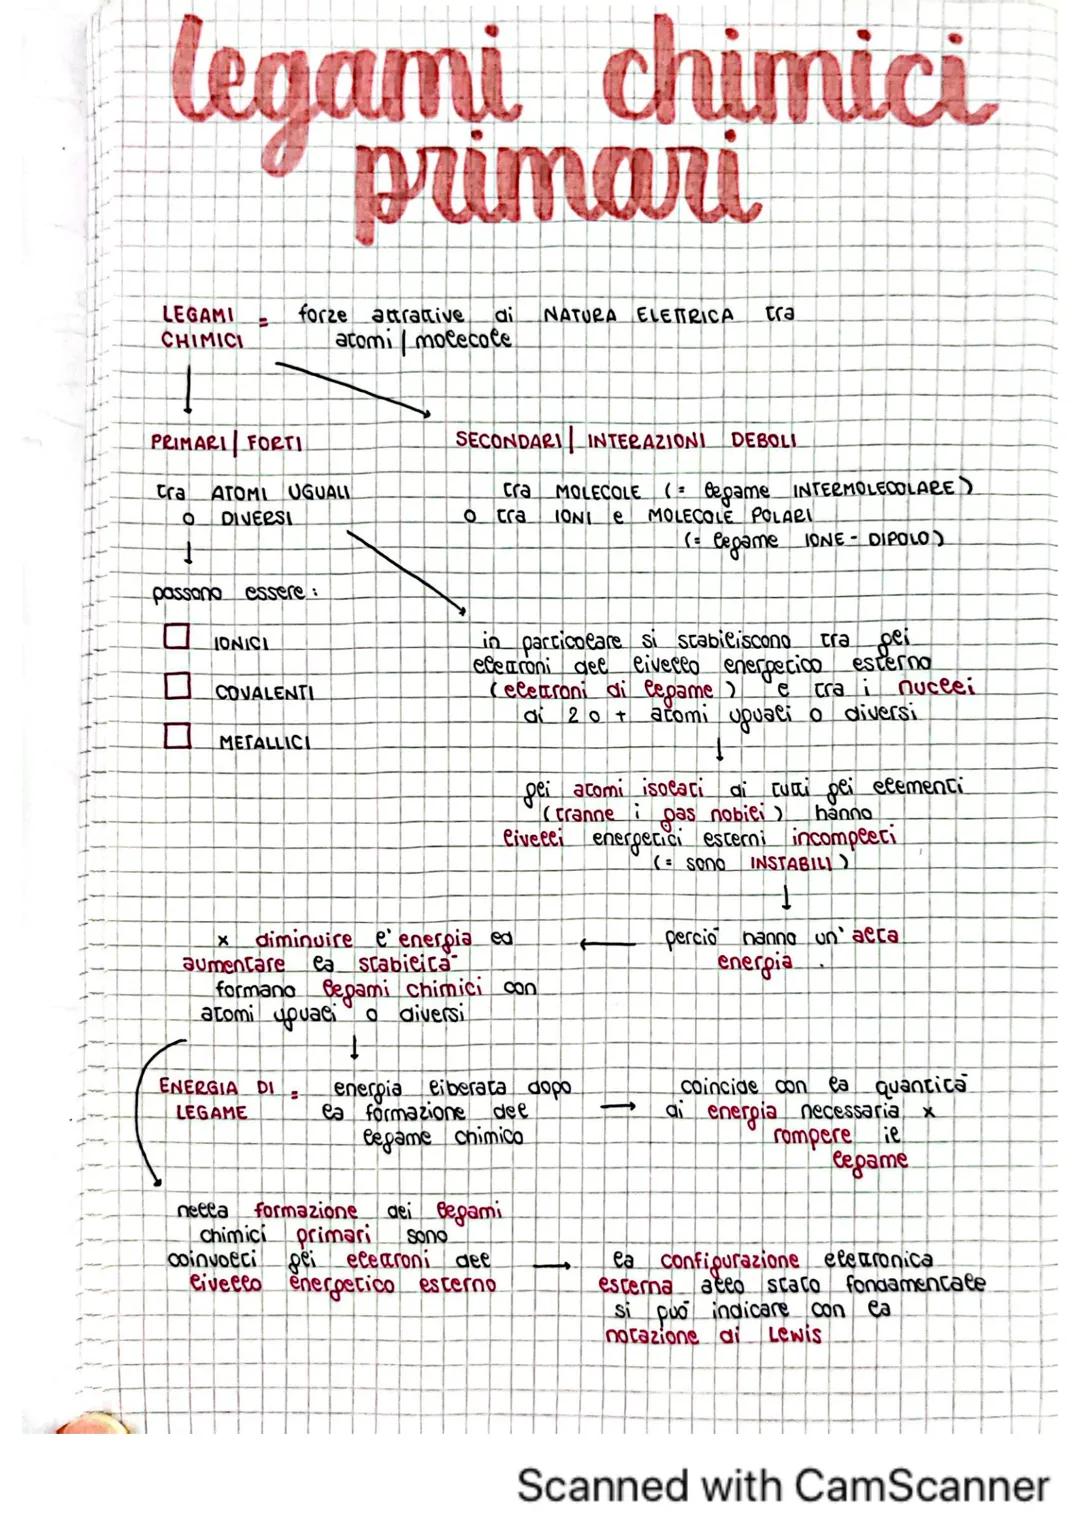 legami chimici
primari
LEGAMI CHIMICI = forze attrattive di NATURA ELETTRICA tra
atomi | molecole
PRIMARI | FORTI
SECONDARI | INTERAZIONI DEBOLI
tra ATOMI UGUALI
o DIVERSI
tra MOLECOLE (= legame INTERMOLECOLARE)
o tra IONI e MOLECOLE POLARI
(= legame IONE - DIPOLO)
possono essere:
IONICI
COVALENTI
METALLICI
in particolare si stabiliscono tra gli
elettroni del livello energetico esterno
(elettroni di legame) e tra i nuclei
di 2 o + atomi uguali o diversi
gli atomi isolati di tutti gli elementi
(tranne i gas nobili) hanno
livelli energetici esterni incompleti
(= sono INSTABILI)
perciò hanno un' alta
energia.
x diminuire l'energia ed
aumentare la stabilità
formano legami chimici con
atomi uguali o diversi
ENERGIA DI LEGAME = energia liberata dopo
la formazione del
legame chimico
coincide con la quantità
di energia necessaria x
rompere il
legame
nella formazione dei legami
chimici primari sono
coinvolti gli elettroni del
livello energetico esterno
la configurazione elettronica
esterna allo stato fondamentale
si può indicare con la
notazione di Lewis
Scanned with CamScanner